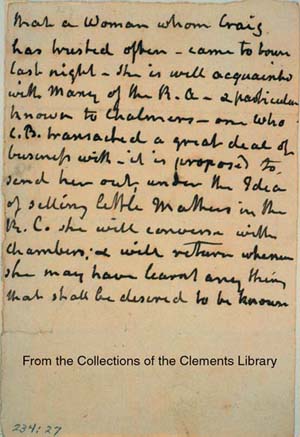 that a Woman whom Craig
has trusted often – came to town
last night – she is well acquainted
with many of the R. A – & particular
known to Chalmers – one who
C.B. transacted a great deal of
business with – it is proposed to
send her out, under the Idea
of selling little Matters in the
R. C. she will converse with
Chambers, & will return whenever
she may have learnt any thing
that shall be desired to be known
From the Collections of the Clements Library
234:27